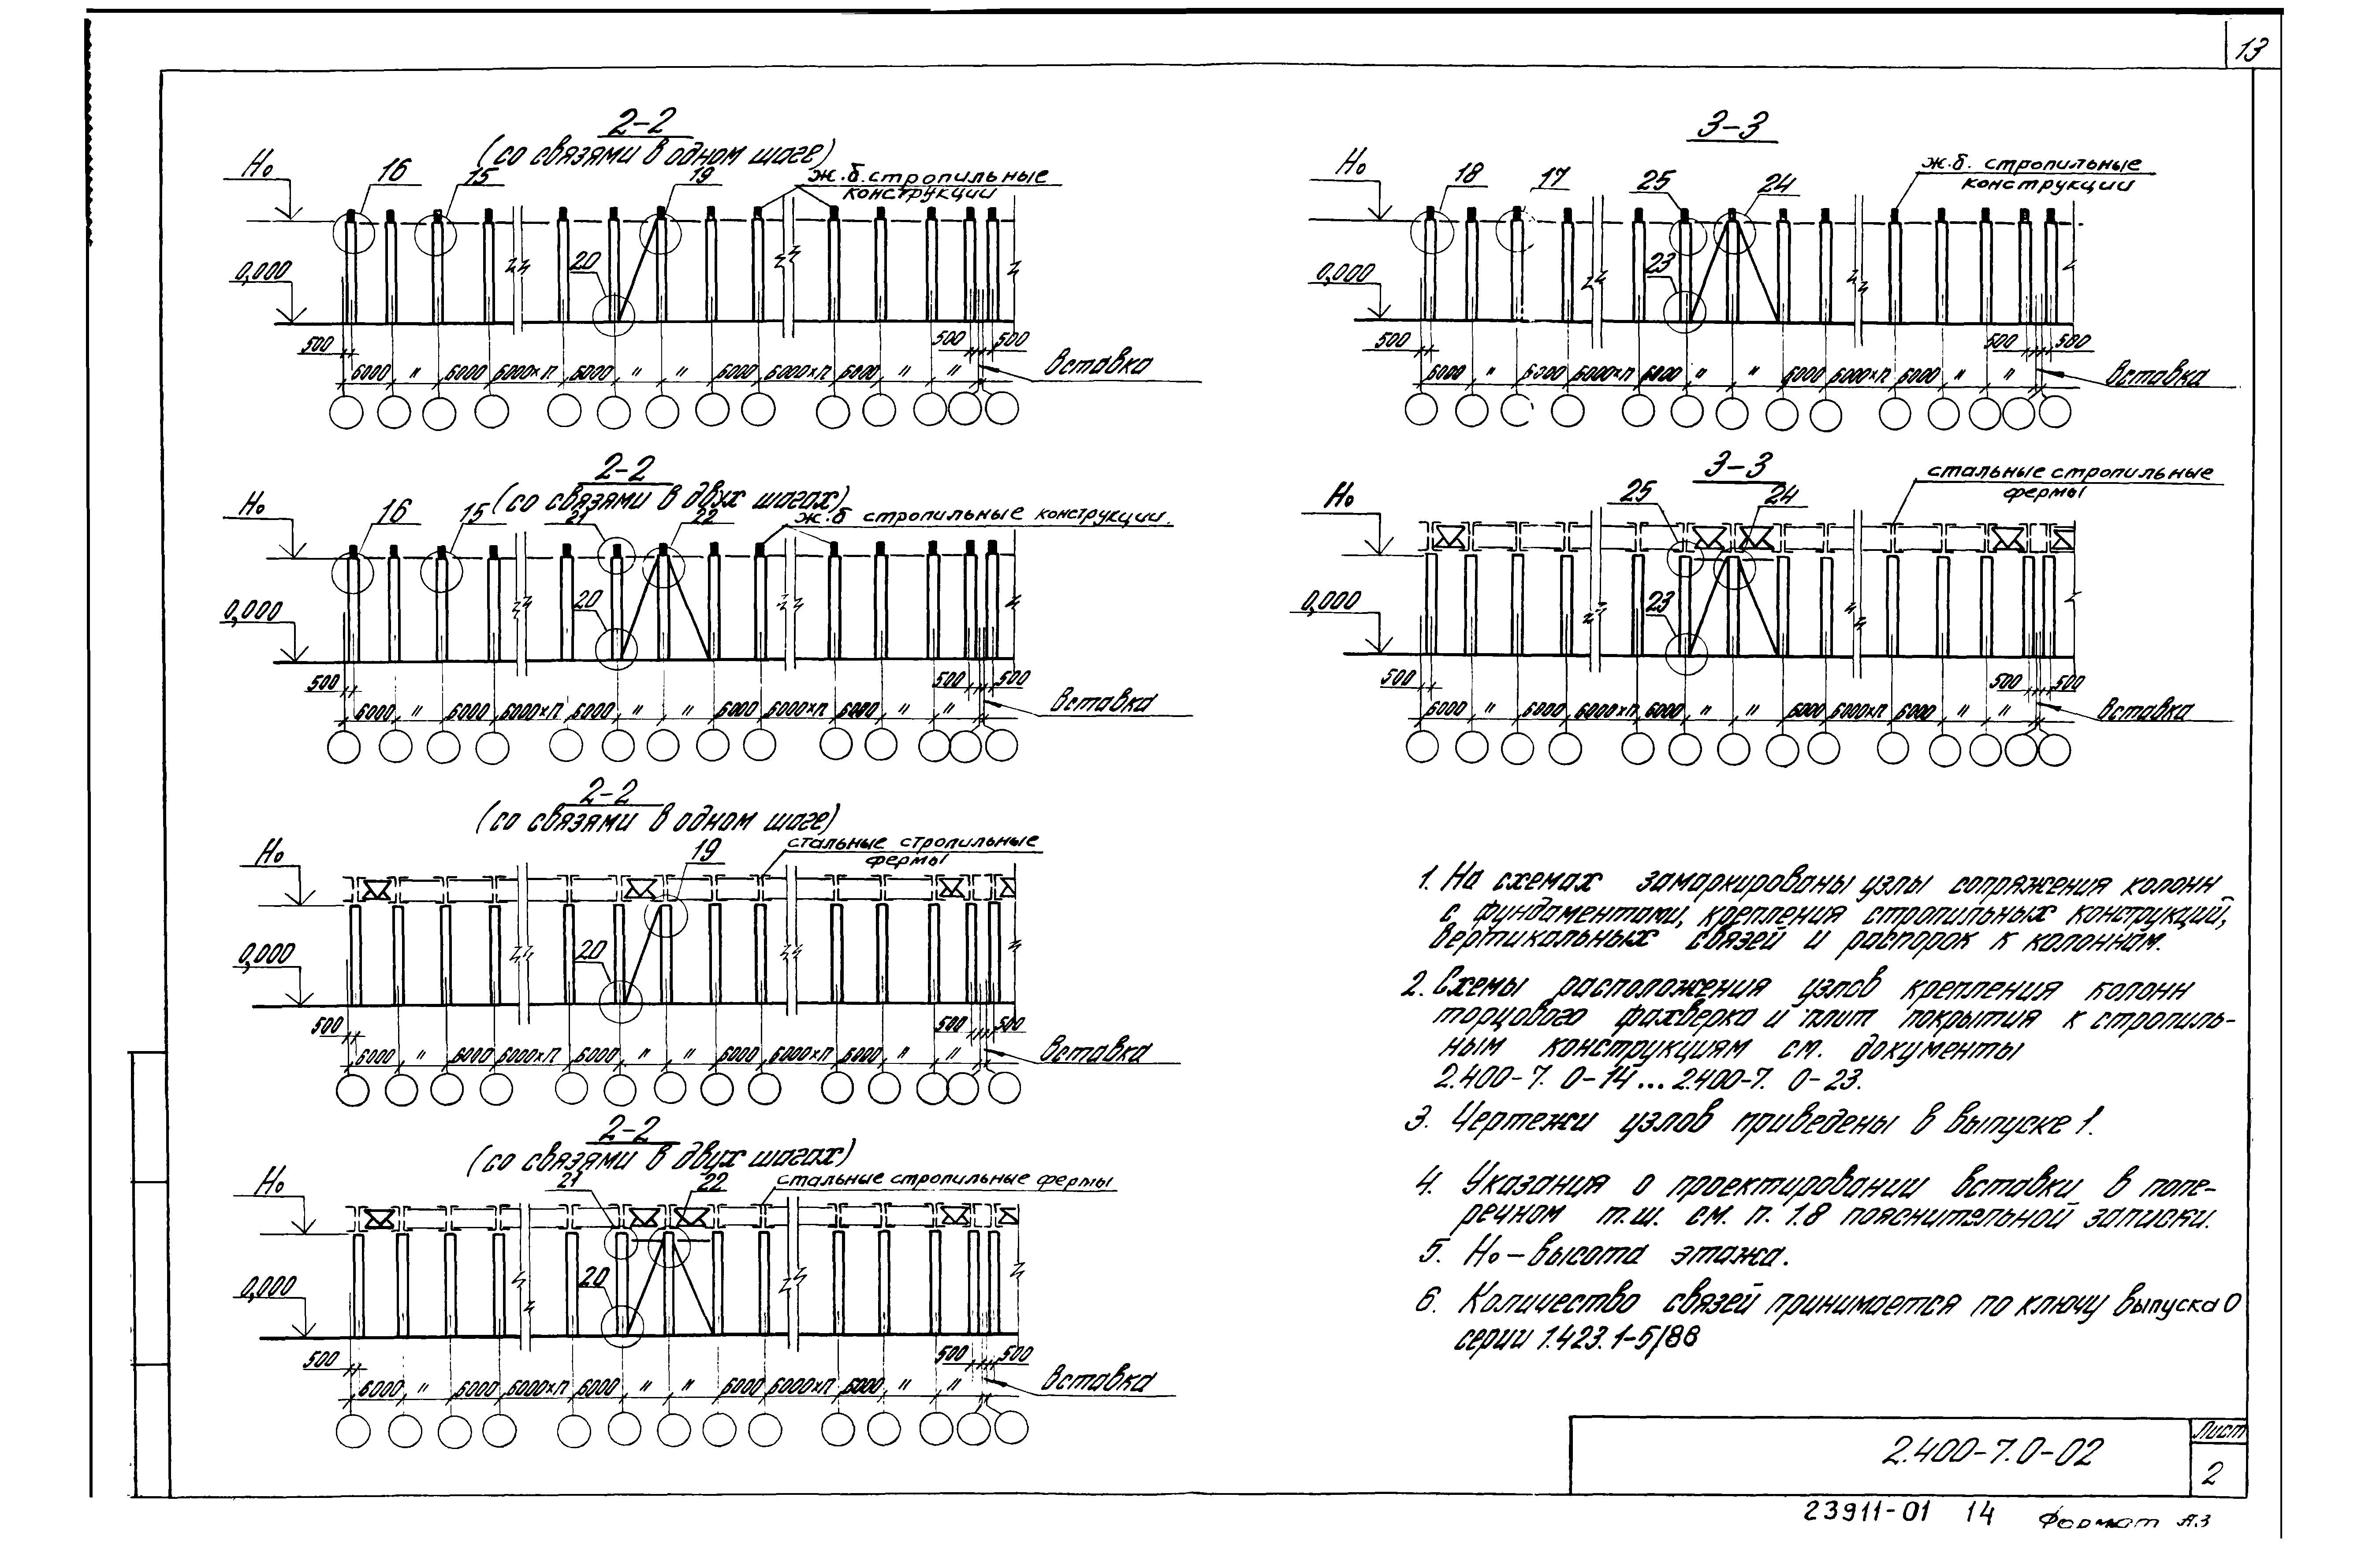 13
2-2
(со связями в одном шаге)
Н₀ 16 15 19 ж.б. стропильные
конструкции
0,000 20
500 500 500
6000 " 6000 6000×п 6000 " " 6000 6000×п 6000 " " Вставка
2-2
(со связями в двух шагах)
Н₀ 16 15 21 22 ж.б стропильные конструкции.
0,000 20
500 500 500
6000 " 6000 6000×п 6000 " " 6000 6000×п 6000 " " Вставка
2-2
(со связями в одном шаге)
Н₀ 19 стальные стропильные
фермы
0,000 20
500 500 500
6000 " 6000 6000×п 6000 " " 6000 6000×п 6000 " " Вставка
2-2
(со связями в двух шагах)
Н₀ 21 22 стальные стропильные фермы
0,000 20
500 500 500
6000 " 6000 6000×п 6000 " " 6000 6000×п 6000 " " Вставка
3-3
Н₀ 18 17 25 24 ж.б. стропильные
конструкции
0,000 23
500 500 500
6000 " 6000 6000×п 6000 " " 6000 6000×п 6000 " " Вставка
3-3
Н₀ 25 24 стальные стропильные
фермы
0,000 23
500 500 500
6000 " 6000 6000×п 6000 " " 6000 6000×п 6000 " " Вставка
1. На схемах замаркированы узлы сопряжения колонн
с фундаментами, крепления стропильных конструкций,
вертикальных связей и распорок к колоннам.
2. Схемы расположения узлов крепления колонн
торцового фахверка и плит покрытия к стропиль-
ным конструкциям см. документы
2.400-7. 0-14...2.400-7. 0-23.
3. Чертежи узлов приведены в выпуске 1.
4. Указания о проектировании вставки в попе-
речном т.ш. см. п. 1.8 пояснительной записки.
5. Н₀ – высота этажа.
6. Количество связей принимается по ключу выпуска 0
серии 1.423.1-5/88
2.400-7.0-02
Лист
2
23911-01 14 Формат А3